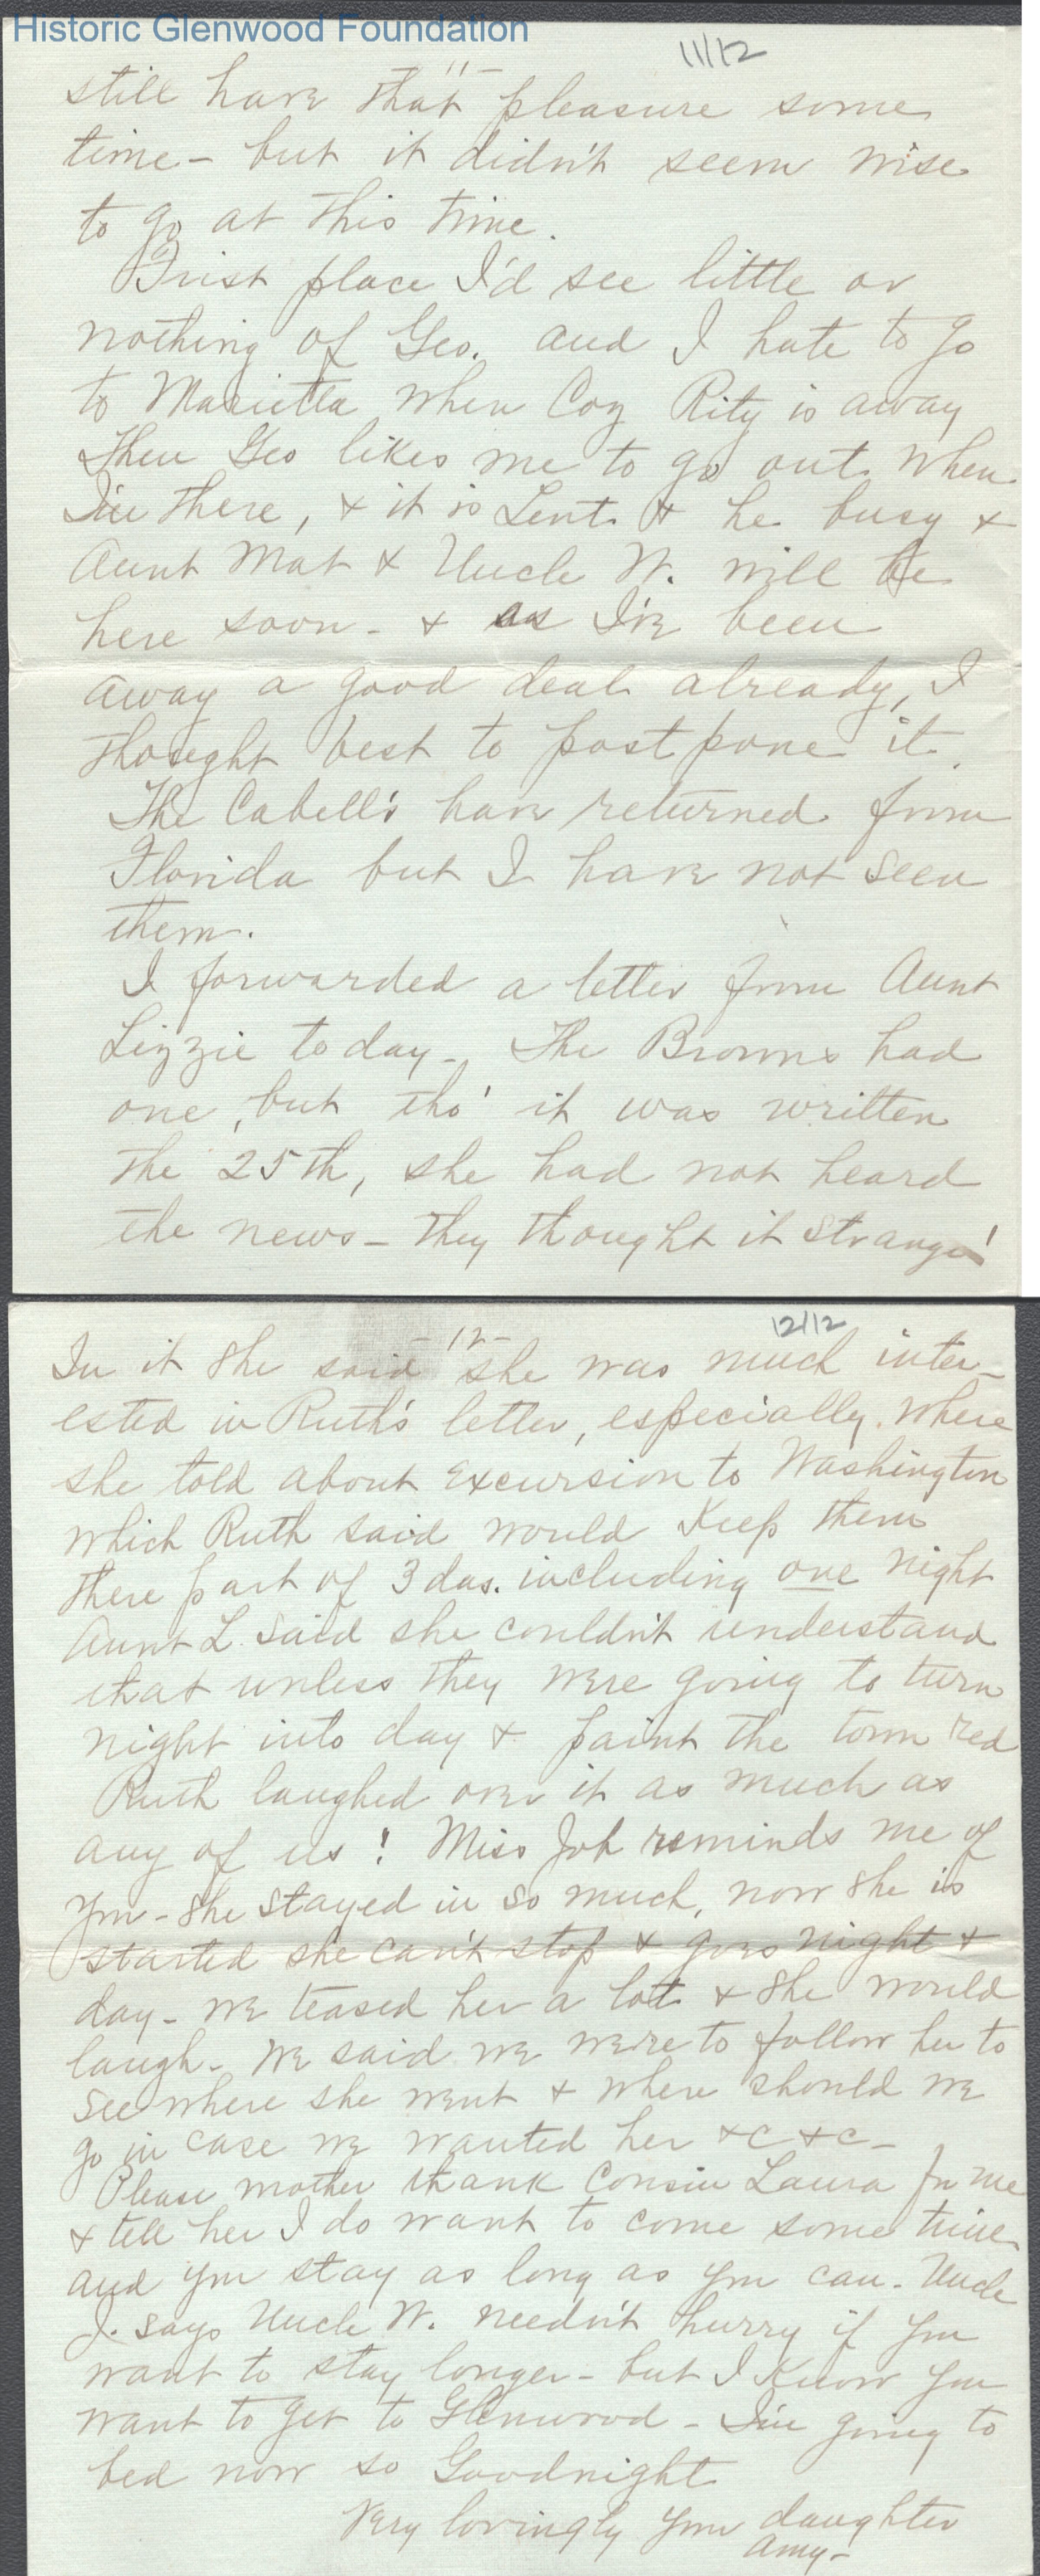 Historic Glenwood Foundation
11/12
"11-
still have that pleasure some
time - but it didn't seem wise
to go at this time.
First place I'd see little or
nothing of Geo. and I hate to go
to Marietta when Coz Rity is away
Then Geo likes me to go out when
I'm there, & it is Lent & he busy &
Aunt Mat & Uncle W. will be
here soon - & as I've been
away a good deal already, I
thought best to postpone it.
The Cabell's have returned from
Florida but I have not seen
them.
I forwarded a letter from Aunt
Lizzie today - The Browns had
one, but tho' it was written
the 25th, she had not heard
the news - they thought it strange!
12/12
-12-
In it she said she was much inter-
ested in Ruth's letter, especially where
she told about excursion to Washington
which Ruth said would keep them
there part of 3 das. including one night
Aunt L. said she couldn't understand
that unless they were going to turn
night into day & paint the town red
Ruth laughed over it as much as
any of us! Miss Joh reminds me of
you - she stayed in so much, now she is
started she can't stop & goes night &
day - we teased her a lot & she would
laugh - We said we were to follow her to
see where she went & where should we
go in case we wanted her &c &c -
Please mother thank Cousin Laura for me
& tell her I do want to come some time
and you stay as long as you can - Uncle
J. says Uncle W. needn't hurry if you
want to stay longer - but I know you
want to get to Glenwood - I'm going to
bed now so Goodnight
Very lovingly your daughter
Amy -